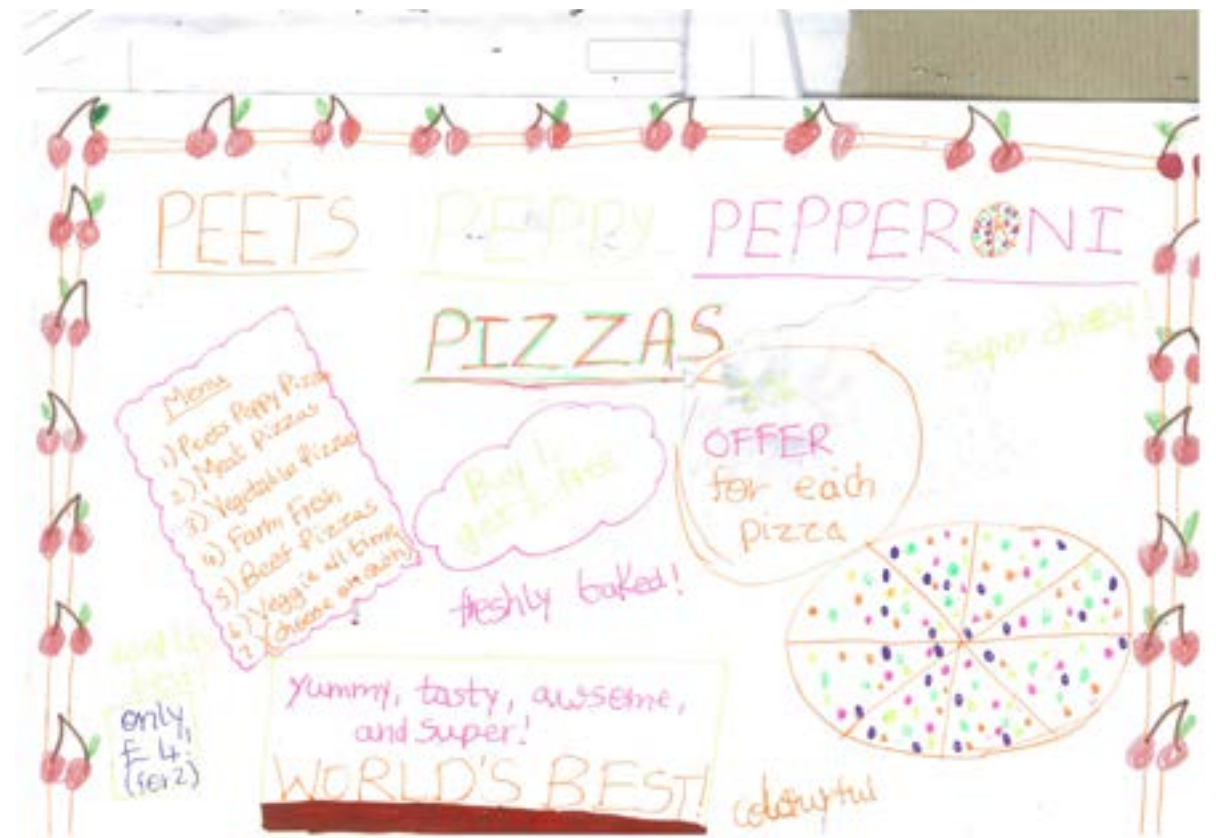 PEETS PEPPY PEPPERONI
PIZZAS
Super cheesy!
Menu
1) Peets Peppy Pizza
2) Meat pizzas
3) Vegetable Pizzas
4) Farm Fresh
5) Beef Pizzas
6) Veggie all time
7) (cheese on each)
Buy 1,
get 1 free
OFFER
for each
pizza
freshly baked!
only,
£ 4.
(for 2)
Yummy, tasty, awsome,
and super!
WORLD'S BEST!
colourful